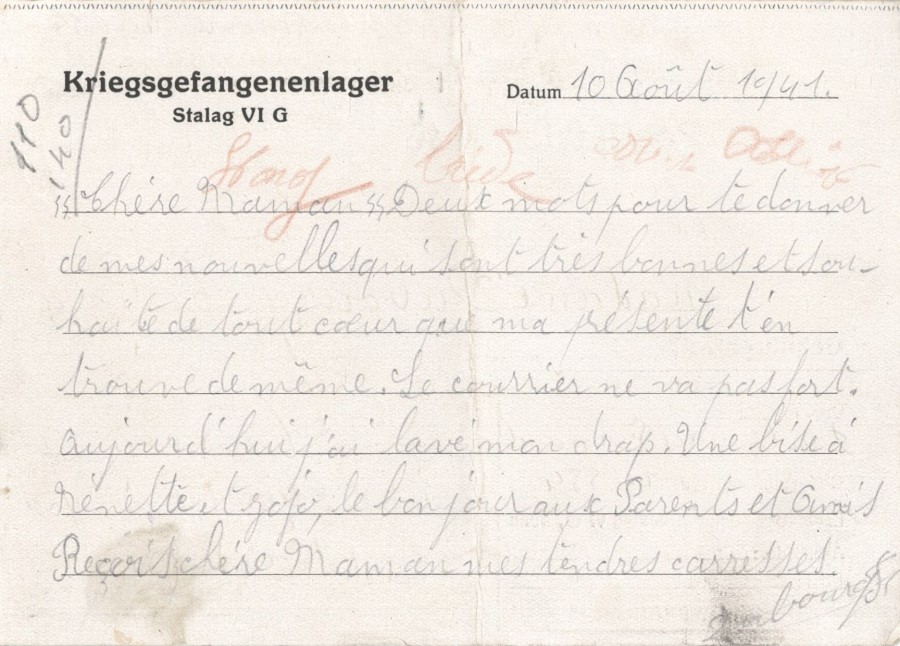 Kriegsgefangenenlager
Stalag VI G
Datum 10 Août 1941.
110
140
Chére Maman Deux mots pour te donner
de mes nouvelles qui sont très bonnes et sou-
haite de tout cœur que ma présente t'en
trouve de même. Le courrier ne va pas fort.
Aujourd'hui j'ai lavé mon drap. Une bise à
Nénette et Jojo, le bonjour aux Parents et Amis
Reçois chére Maman mes tendres carresses.